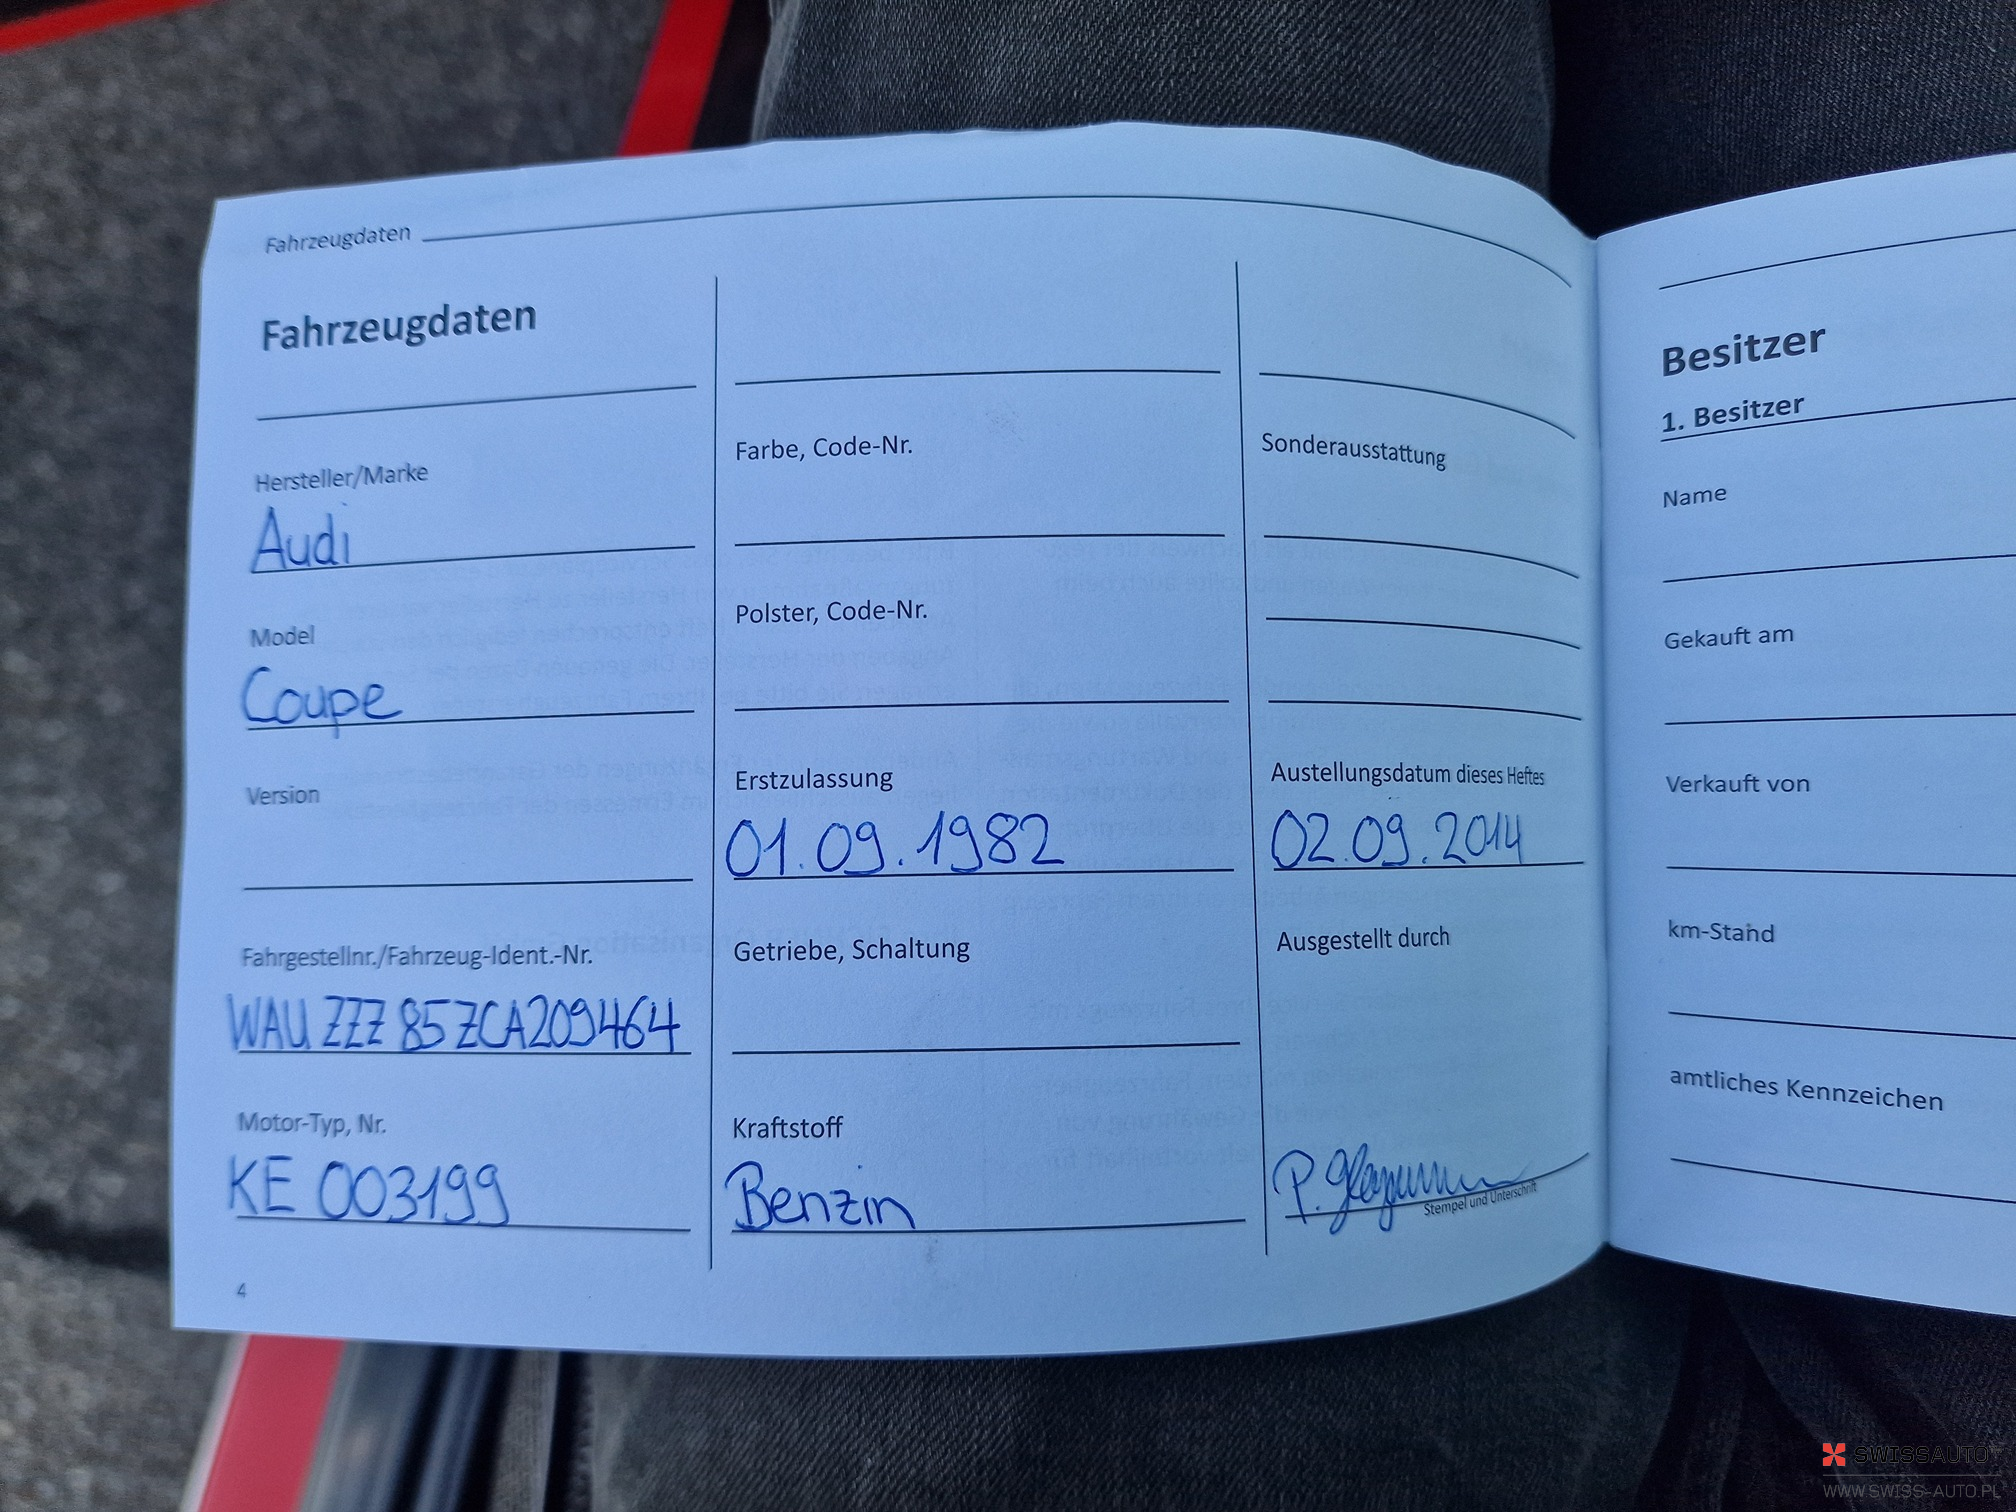 Fahrzeugdaten
Fahrzeugdaten
Hersteller/Marke
Audi
Model
Coupe
Version
Fahrgestellnr./Fahrzeug-Ident.-Nr.
WAU ZZZ 85 ZCA209464
Motor-Typ, Nr.
KE 003199
4
Farbe, Code-Nr.
Polster, Code-Nr.
Erstzulassung
01.09.1982
Getriebe, Schaltung
Kraftstoff
Benzin
Sonderausstattung
Austellungsdatum dieses Heftes
02.09.2014
Ausgestellt durch
P.
Stempel und Unterschrift
Besitzer
1. Besitzer
Name
Gekauft am
Verkauft von
km-Stand
amtliches Kennzeichen
SWISSAUTO
WWW.SWISS-AUTO.PL